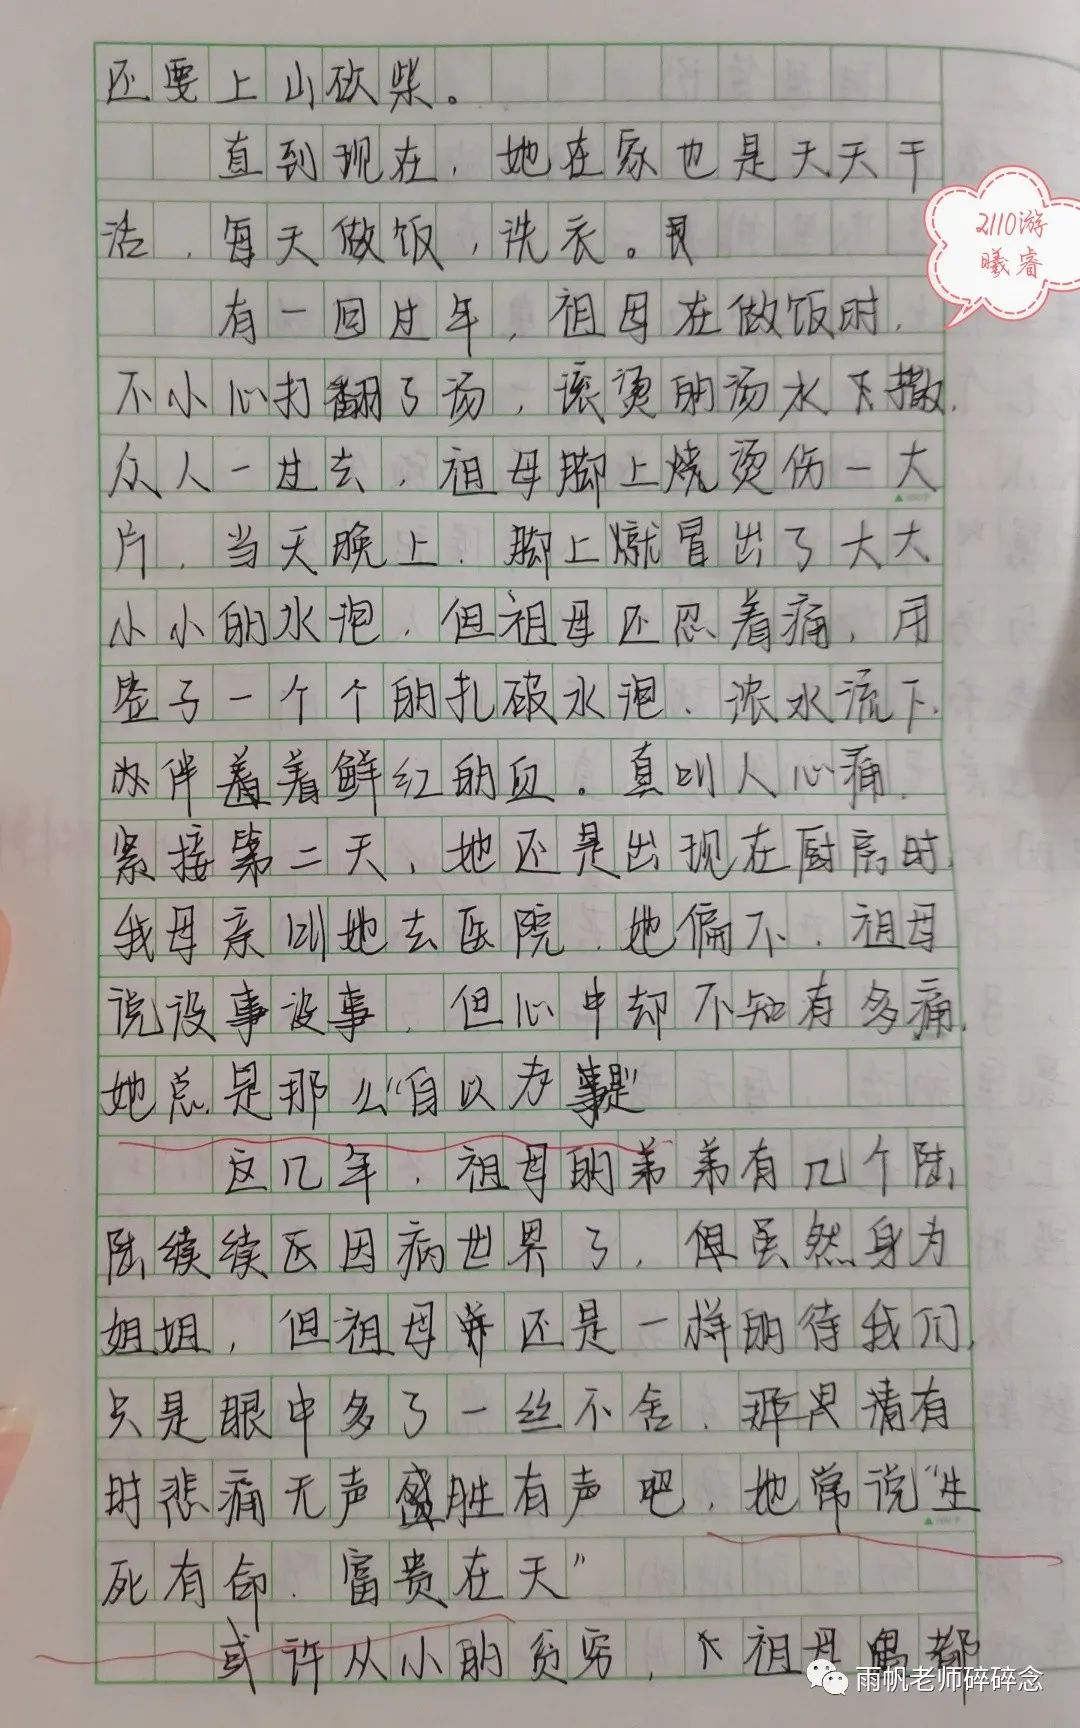 还要上山砍柴。
直到现在，她在家也是天天干
活，每天做饭，洗衣。
有一回过年，祖母在做饭时，
不小心打翻了汤，滚烫的汤水下撒，
众人一过去，祖母脚上烧烫伤一大
片，当天晚上，脚上就冒出了大大
小小的水泡，但祖母还忍着痛，用
子一个个的扎破水泡、浓水流下，
伴着着鲜红的血。真叫人心痛，
紧接第二天，她还是出现在厨房时，
我母亲叫她去医院，她偏不，祖母
说没事没事，但心中却不知有多痛，
她总是那么“自以为是”
这几年，祖母的弟弟有几个陆
陆续续因病世界了，但虽然身为
姐姐，但祖母还是一样的待我们，
只是眼中多了一丝不舍，那果清有
时悲痛无声盛胜有声吧，她常说“生
死有命、富贵在天”
或许从小的贫穷，祖母都
2110游
曦睿
雨帆老师碎碎念